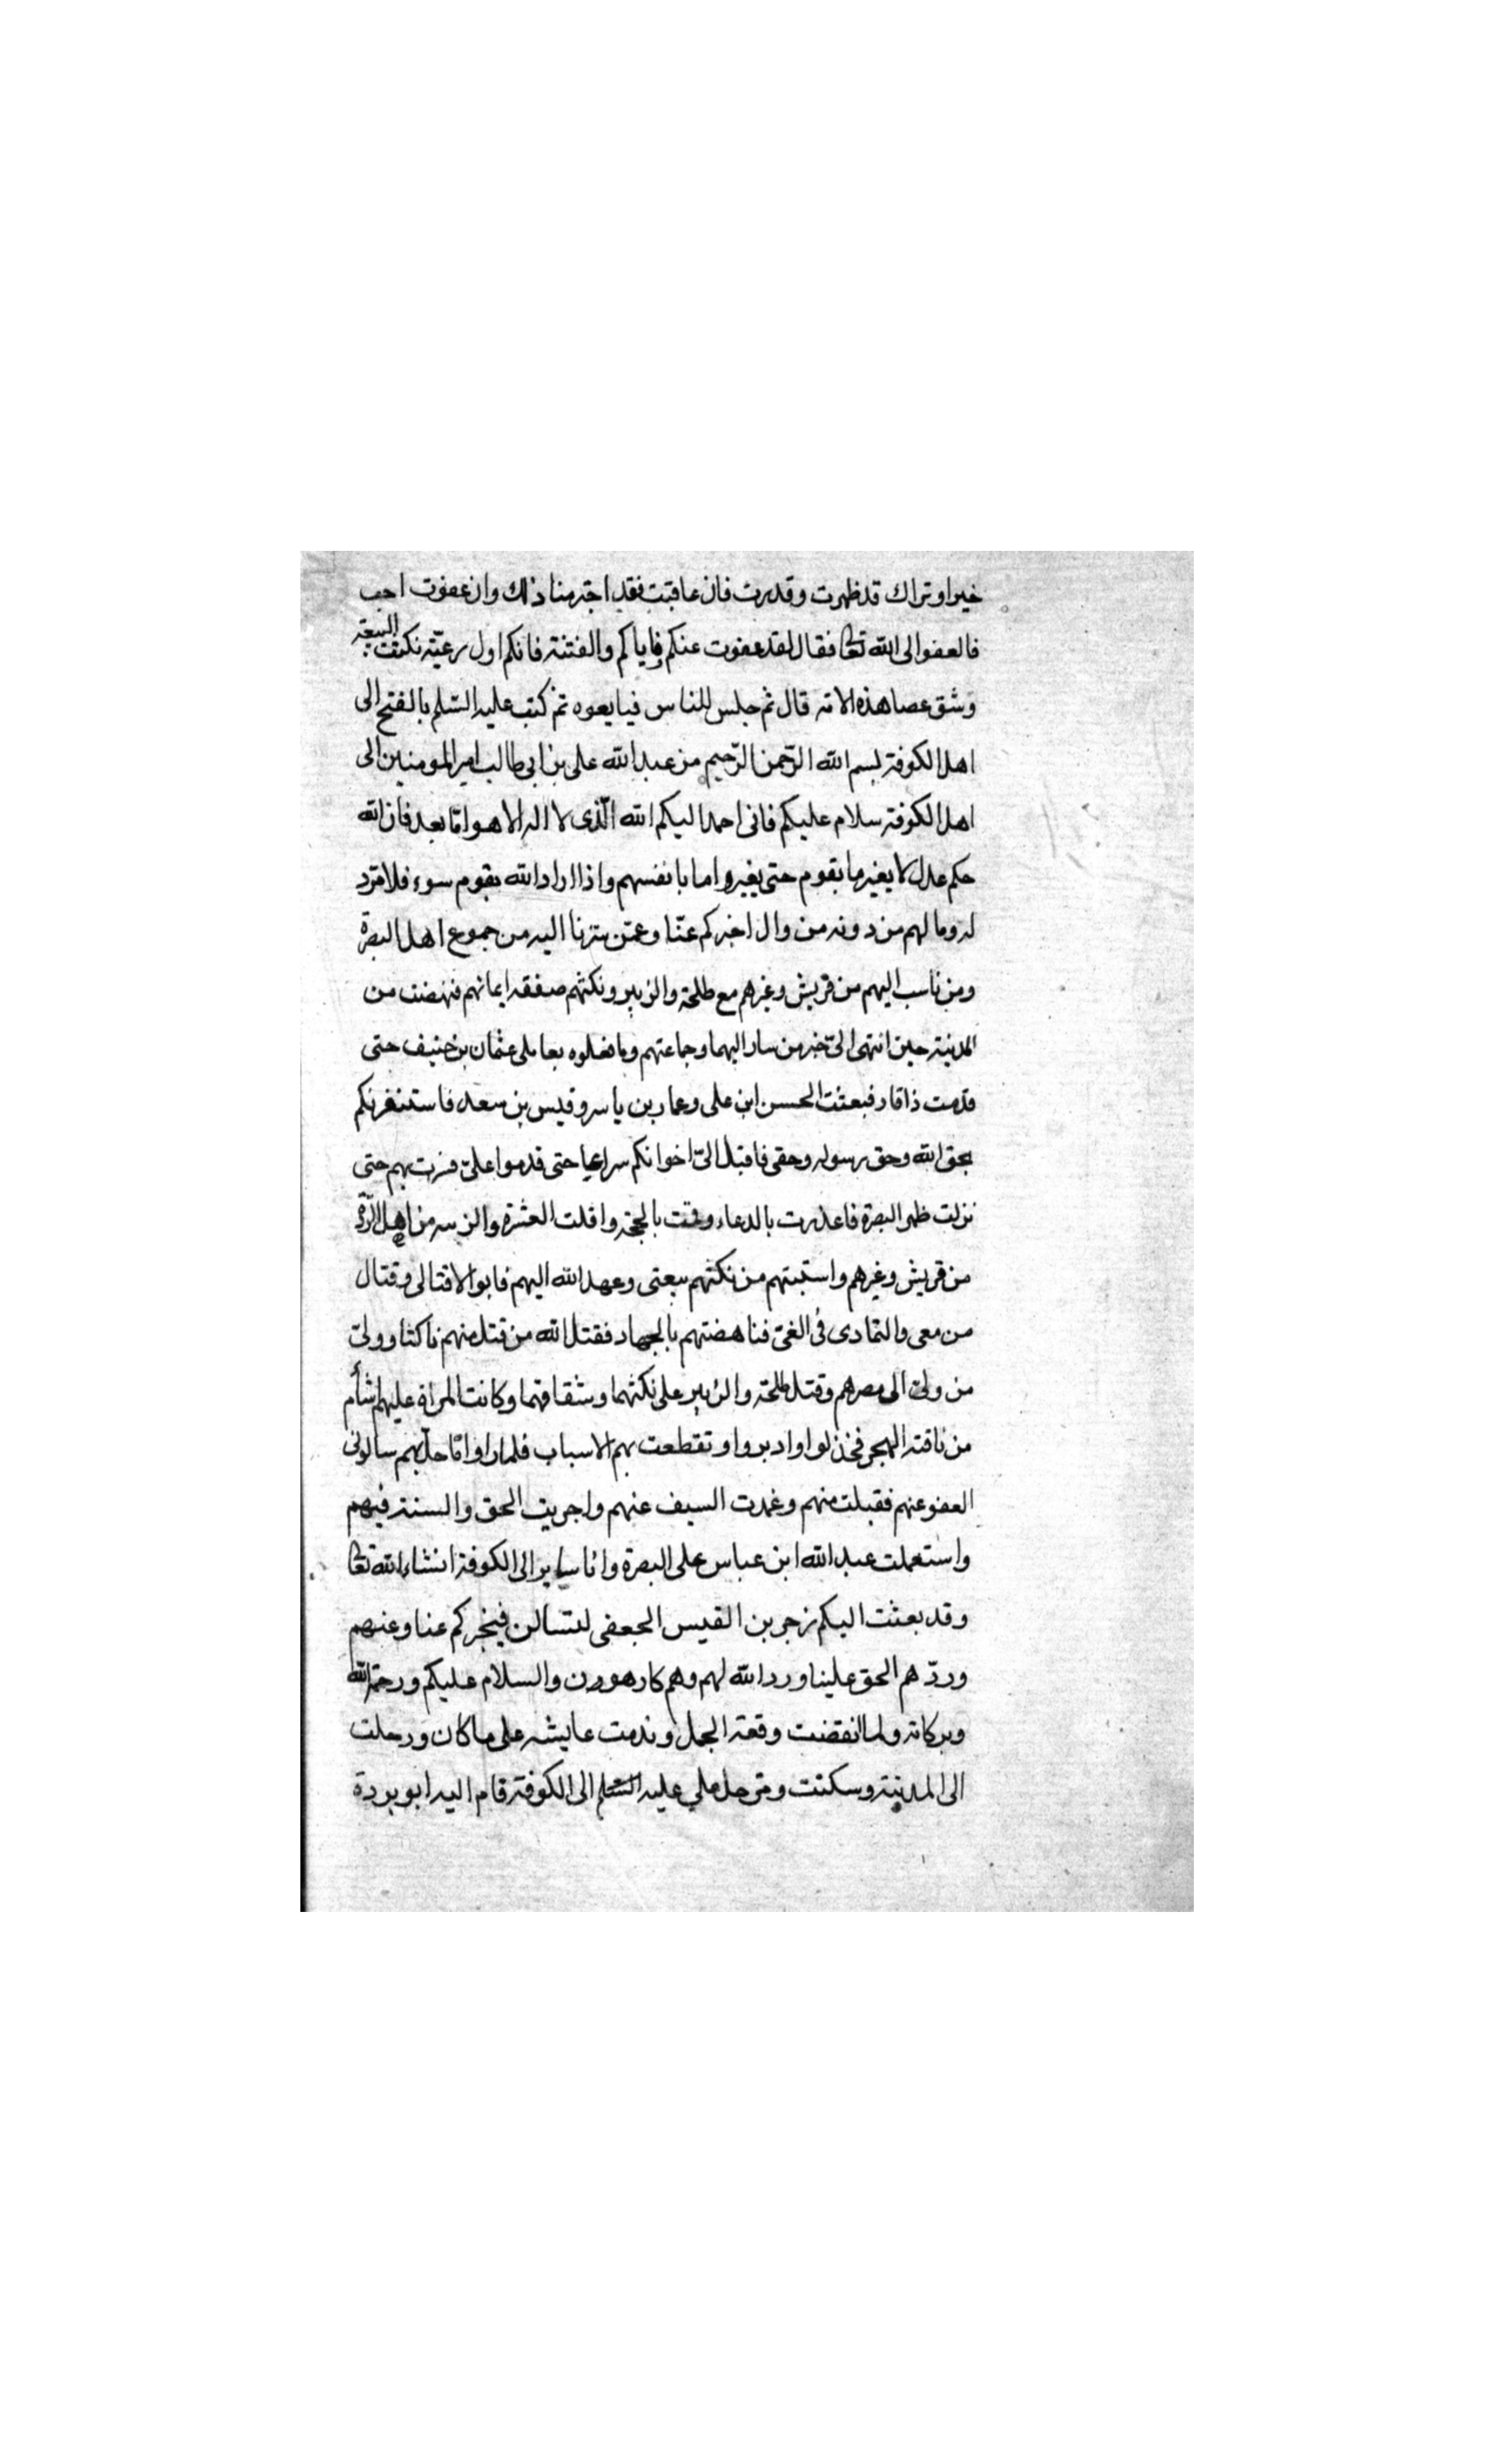 خيرا ونراك قد ظهرت وقدرت فان عاقبت فقد اجترمنا ذلك وان عفوت احب
فالعفو الى الله تعالى فقال لقد عفوت عنكم فاياكم والفتنة فانكم اول رعيّة نكثت البيعة
وشق عصا هذه الامة قال ثم جلس للناس فبايعوه ثم كتب عليه السّلم بالفتح الى
اهل الكوفة بسم الله الرّحمن الرّحيم من عبد الله على بن ابى طالب امير المومنين الى
اهل الكوفة سلام عليكم فانى احمد اليكم الله الّذى لا اله الا هو امّا بعد فان الله
حكم عدل لا يغير ما بقوم حتى يغيروا ما بانفسهم واذا اراد الله بقوم سوء فلا مردّ
له وما لهم من دونه من وال اخبركم عنّا وعمّن سرنا اليه من جموع اهل البصرة
ومن تاسب اليهم من قريش وغيرهم مع طلحة والزبير ونكثهم صفقه ايمانهم فنهضت من
المدينة حين انتهى الىّ خبر من سار اليهما وجماعتهم وما فعلوه بعاملى عثمان بن حنيف حتى
قدمت ذاقار فبعثت الحسن ابن على وعمار بن ياسر وقيس بن سعد فاستنفرتكم
بحق الله وحق رسوله وحقى فاقبل الىّ اخوانكم سراعا حتى قدموا علىّ فسرت بهم حتى
نزلت ظهر البصرة فاعذرت بالدعاء وقمت بالحجة واقلت العثرة والزسه من اهل الرّدّة
من قريش وغيرهم واستبتهم من نكثهم بيعتى وعهد الله اليهم فابوا الا قتالى وقتال
من معى والتمادى فى الغىّ فناهضتهم بالجهاد فقتل الله من قتل منهم ناكثا وولىّ
من ولىّ الى مصرهم وقتل طلحة والزبير على نكثهما وشقاقهما وكانت المراة عليهم اشأم
من ناقة الهجر فخذلوا وادبروا وتقطعت بهم الاسباب فلما راوا ما حلّ بهم سالونى
العفو عنهم فقبلت منهم وغمدت السيف عنهم واجريت الحق والسنة فيهم
واستعملت عبد الله ابن عباس على البصرة وانا ساير الى الكوفة انشاء الله تعالى
وقد بعثت اليكم زجر بن القيس الجعفى لتسالن فيخبركم عنا وعنهم
وردّهم الحق علينا ورد الله لهم وهم كارهون والسلام عليكم ورحمة الله
وبركاته ولما انقضت وقعة الجمل وندمت عايشه على ما كان ورحلت
الى المدينة وسكنت وترحل على عليه السّلم الى الكوفة قام اليه ابو بردة